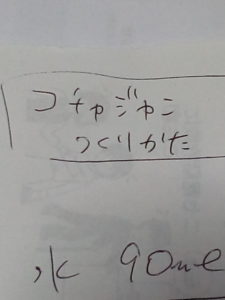 コチャジャン
つくりかた
水 90ml